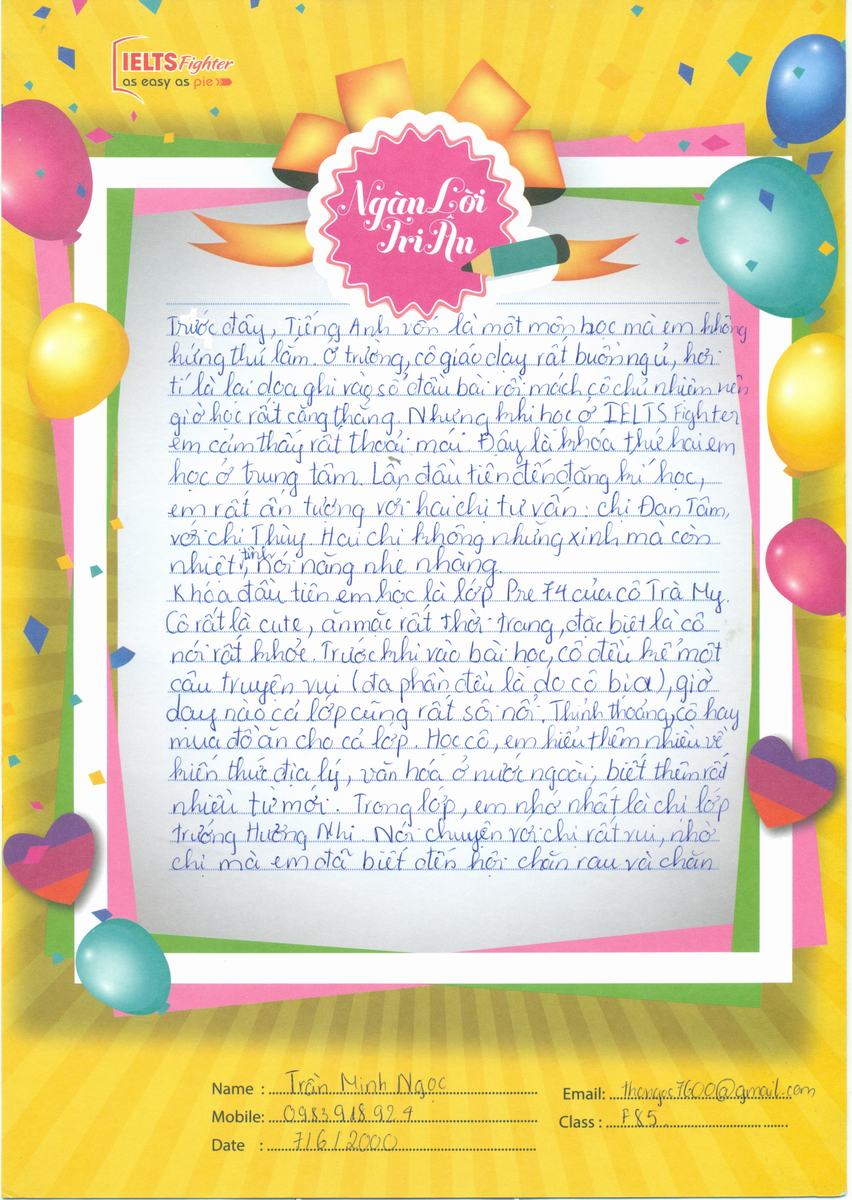 IELTS Fighter
as easy as pie
Ngàn Lời
Tri Ân
Trước đây, Tiếng Anh vốn là một môn học mà em không
hứng thú lắm. Ở trường, cô giáo dạy rất buồn ngủ, hơi
tí là lại dọa ghi vào sổ đầu bài rồi mách cô chủ nhiệm nên
giờ học rất căng thẳng. Nhưng khi học ở IELTS Fighter
em cảm thấy rất thoải mái. Đây là khóa thứ hai em
học ở trung tâm. Lần đầu tiên đến đăng kí học,
em rất ấn tượng với hai chị tư vấn: chị Đan Tâm,
với chị Thùy. Hai chị không những xinh mà còn
nhiệt tình, nói năng nhẹ nhàng.
Khóa đầu tiên em học là lớp Pre 74 của cô Trà My.
Cô rất là cute, ăn mặc rất thời trang, đặc biệt là cô
nói rất khỏe. Trước khi vào bài học, cô đều kể một
câu truyện vui (đa phần đều là do cô bịa), giờ
dạy nào cả lớp cũng rất sôi nổi. Thỉnh thoảng, cô hay
mua đồ ăn cho cả lớp. Học cô, em hiểu thêm nhiều về
kiến thức địa lý, văn hóa ở nước ngoài, biết thêm rất
nhiều từ mới. Trong lớp, em nhớ nhất là chị lớp
trưởng Hương Nhi. Nói chuyện với chị rất vui, nhờ
chị mà em đã biết đến hội chăn rau và chăn
Name : Trần Minh Ngọc
Email: thcngoc7600@gmail.com
Mobile: 0983918924
Class : P85.
Date : 7/6/2000